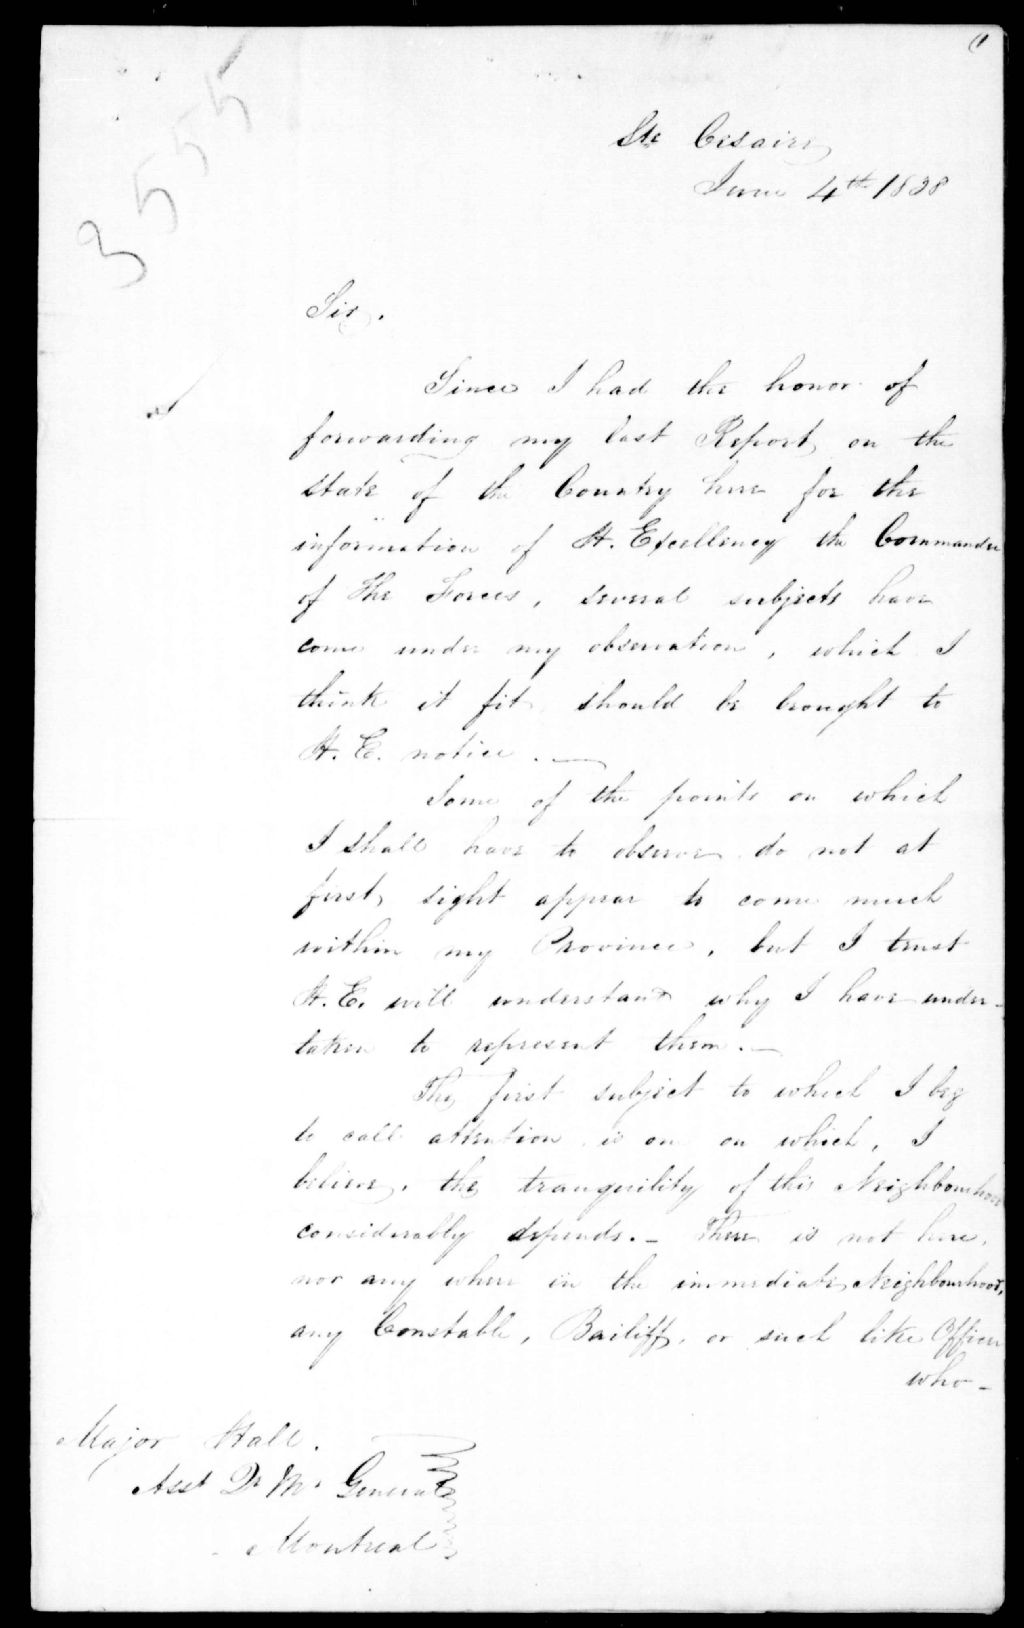 3555
Ste Cesaire
June 4th 1838
Sir,
Since I had the honor of
forwarding my last Report, on the
state of the Country here for the
information of H. Excellency the Commander
of the Forces, several subjects have
come under my observation, which I
think it fit, should be brought to
H. E. notice. —
Some of the points on which
I shall have to observe do not at
first, sight appear to come much
within my Province, but I trust
H. E. will understand why I have under-
taken to represent them. —
The first subject to which I beg
to call attention is one on which, I
believe, the tranquility of this Neighbourhood
considerably depends. — There is not here,
nor any where in the immediate Neighbourhood,
any Constable, Bailiff, or such like Officer
who —
Major Hall.
Asst Qr Mr General
Montreal